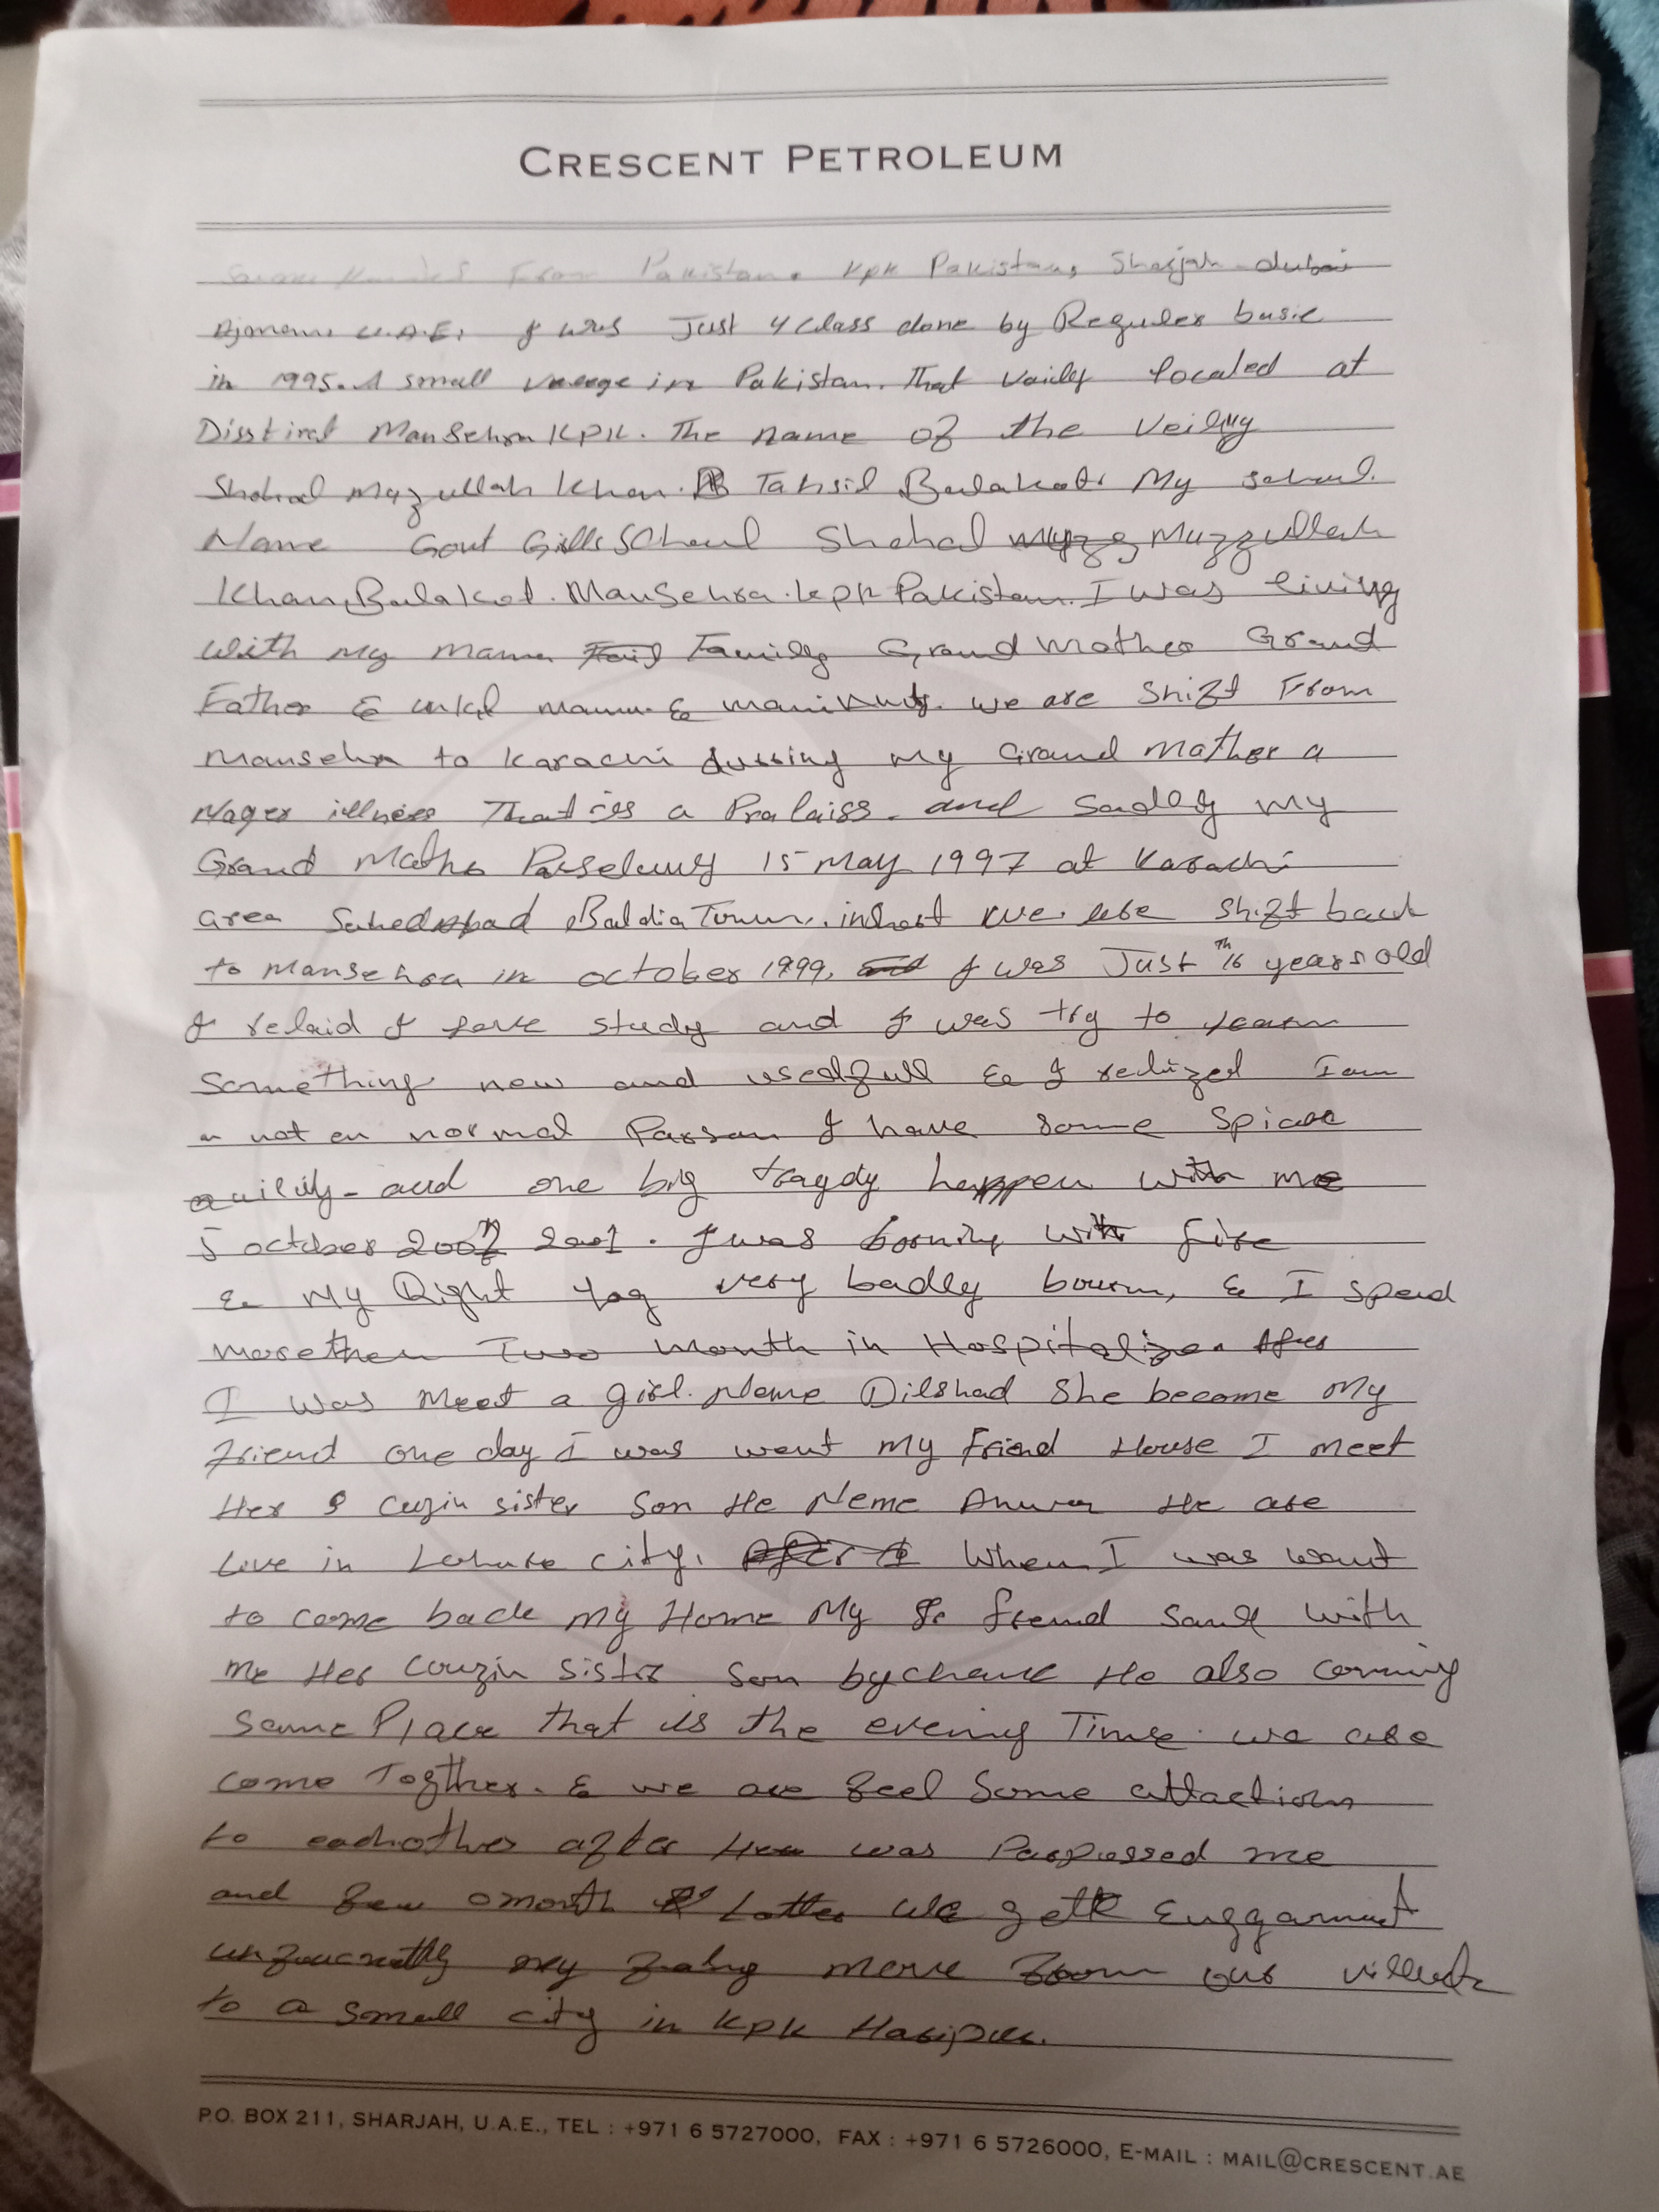 CRESCENT PETROLEUM
From Pakistan. KPK Pakistan, Sharjah dubai
Ajman U.A.E. I was Just 4 class done by Reguler basic
in 1995. A small in Pakistan. That located at
Disstirct Mansehra KPK. The name of the
Shohal Muzzullah Khan. Tahsil Balakot. My
Name Govt Shohal Muzzullah
Khan, Balakot. Mansehra. kpk Pakistan. I was living
with my mama Family Grand Mother Grand
Father & & we are Shift From
Mansehra to Karachi my Grand Mather a
illness That is a and Sadly my
Grand 15 May 1997 at Karachi
area Baldia Town. we Shift back
to Mansehra in october 1999, I was Just 16th years old
I I study and I was try to
Something new and & I I am
not en normal Parson I have some
and one big tragdy happen with me
5 october 2001. I was with fire
& My Right very badly bourn, & I
more then Two month in
I was Meet a girl. Name Dilshad She become My
friend one day I was went my friend House I meet
Her cuzin sister Son He Neme He are
Live in city. When I was want
to come back my Home My with
me Her couzin sister Son by He also coming
Same Place that is the evening Time. we are
come Togther. & we are feel Some attaction
to eachother after was me
and month we
my move our
to a small city in KPK Haripur.
P.O. BOX 211, SHARJAH, U.A.E., TEL : +971 6 5727000, FAX : +971 6 5726000, E-MAIL : MAIL@CRESCENT.AE